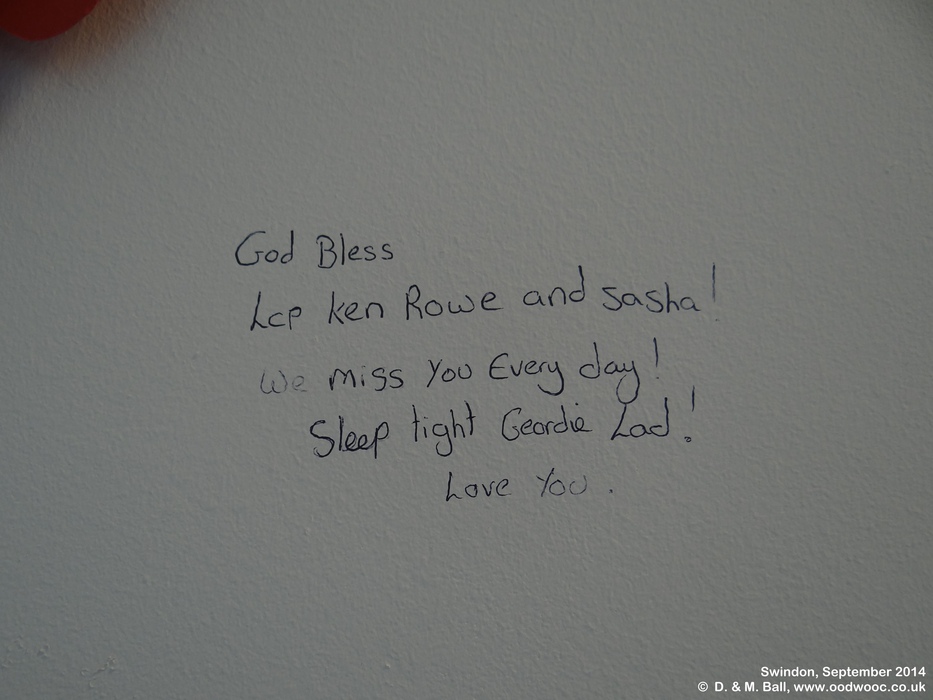 God Bless
Lcp ken Rowe and sasha!
We miss you Every day!
Sleep tight Geordie Lad!
Love You.
Swindon, September 2014
© D. & M. Ball, www.oodwooc.co.uk